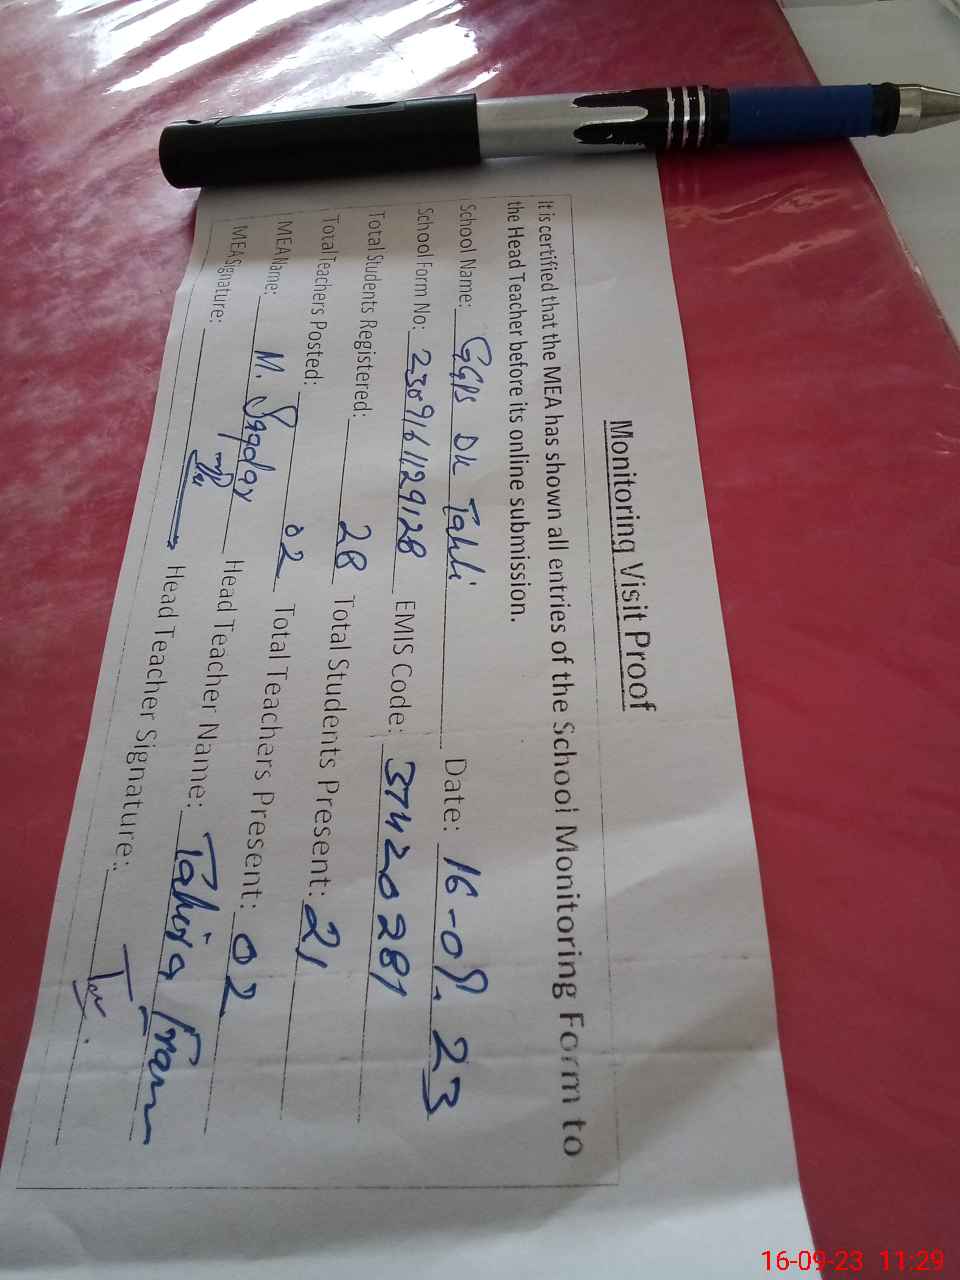 Monitoring Visit Proof
It is certified that the MEA has shown all entries of the School Monitoring Form to
the Head Teacher before its online submission.
School Name: GGPS DK Tahli Date: 16-09-23
School Form No: 2309161129128 EMIS Code: 37420281
Total Students Registered: 28 Total Students Present: 21
Total Teachers Posted: 02 Total Teachers Present: 02
MEA Name: M. Safdar Head Teacher Name: Tahira
MEA Signature: Head Teacher Signature:
16-09-23 11:29